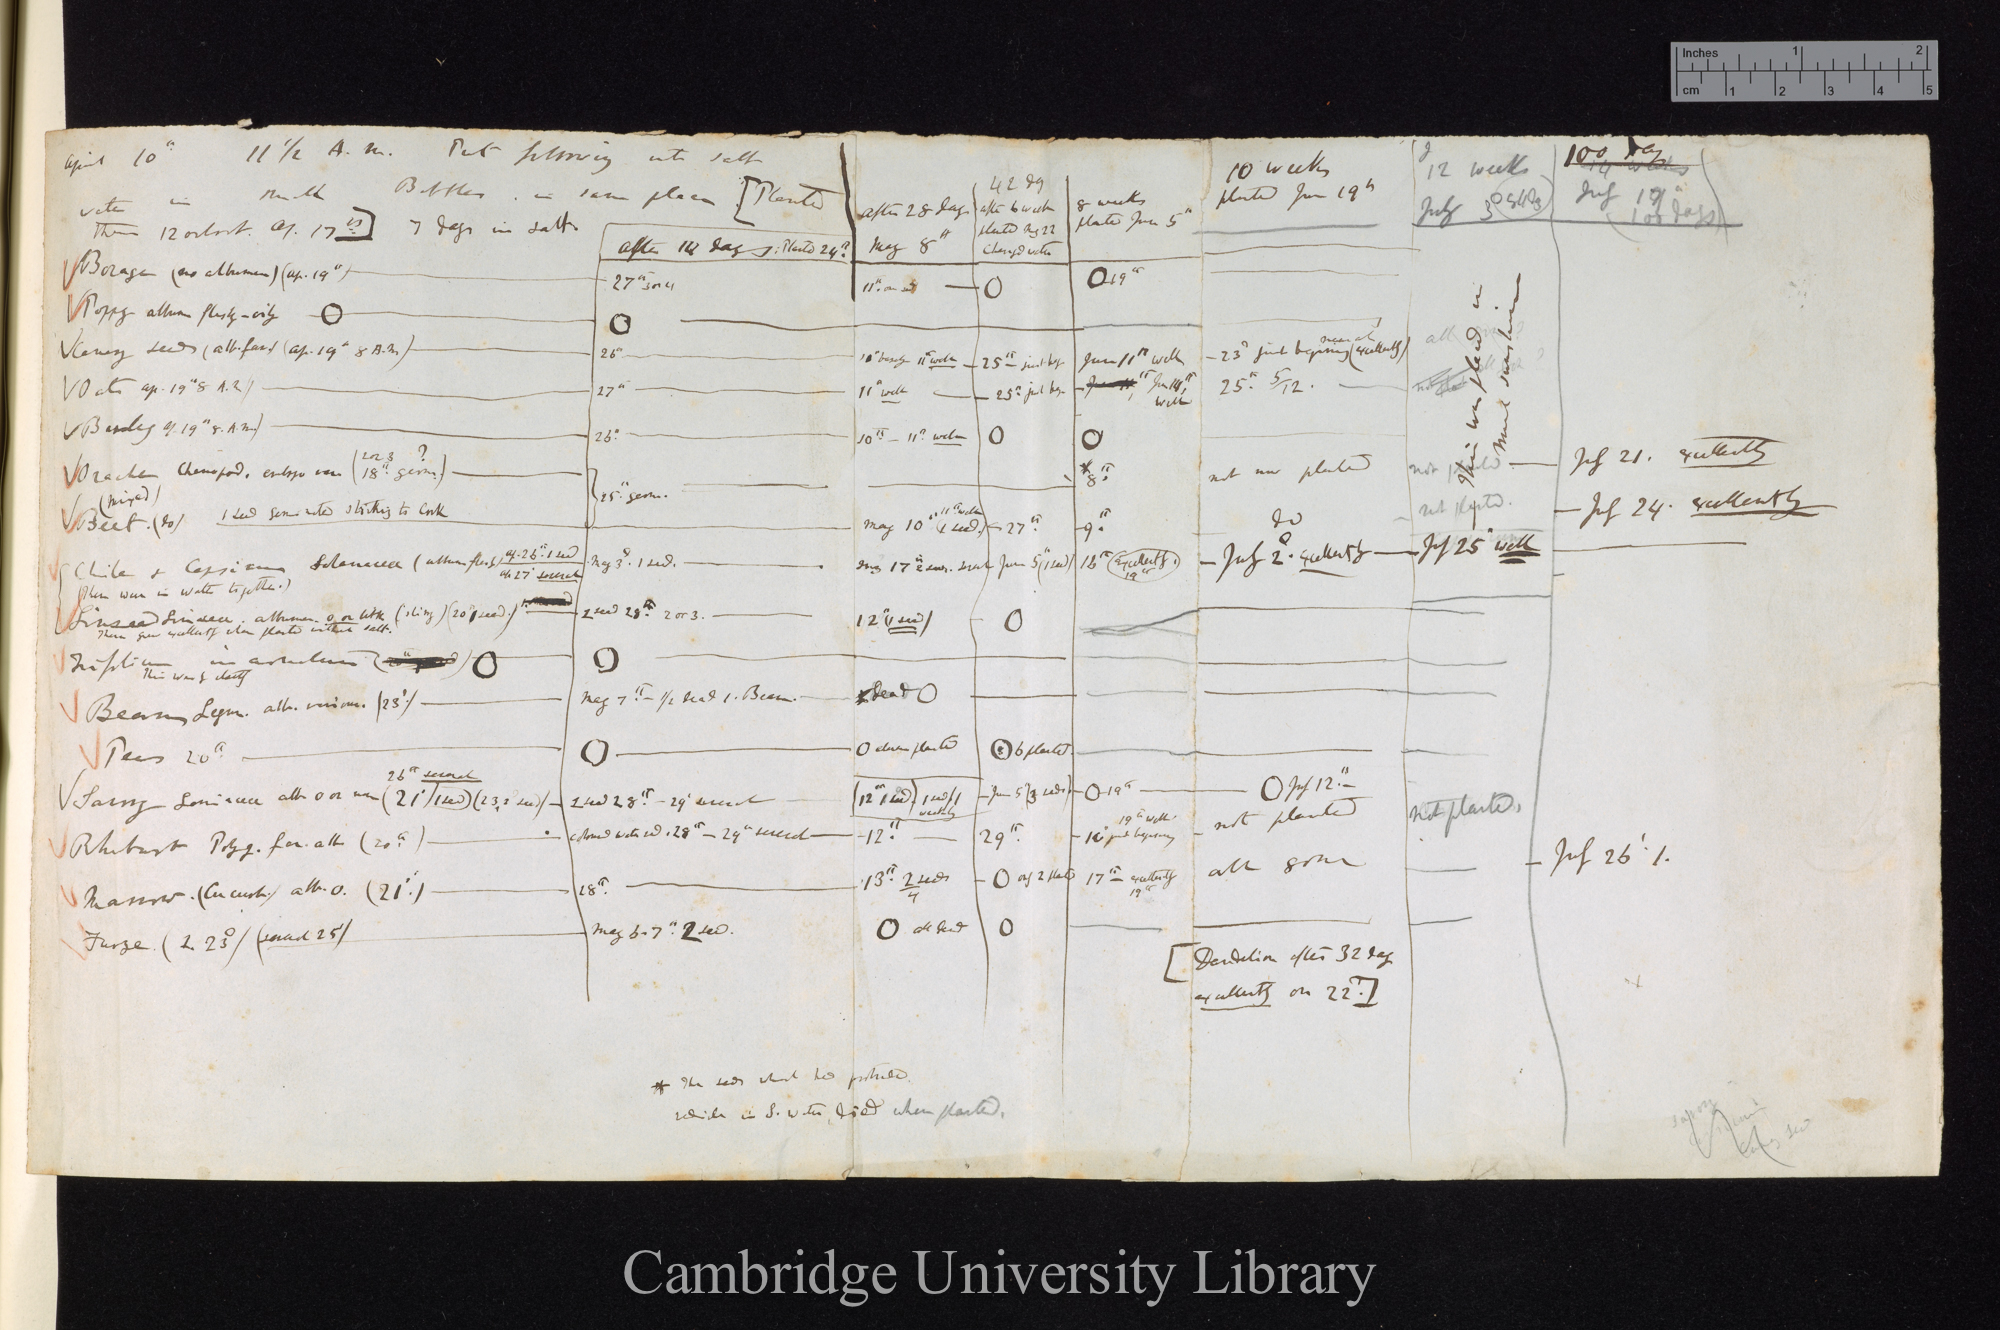 Inches 1 2
cm 1 2 3 4 5
April 10th 11 1/2 A.M. Put following into salt
water in small Bottles in same place [Planted
them 12 oclock. Ap. 17th] 7 days in salt
after 14 days: Planted 24th
after 28 days
May 8th
42 day
after 6 weeks
planted May 22
Changed water
8 weeks
planted June 5th
10 weeks
planted June 19th
12 weeks
July 3
100 days
14 weeks
July 19th
(100 days)
Borage (no albumen) (ap. 19th) 27th 3 or 4 11th O O 19th
Poppy album fleshy-oily O O
Canary seeds (alb. far.) (ap. 19th 8 A.M.) 26th 10th 11th well 25th just beg. June 11th well 23d just beginning (excellently)
Oats ap. 19th 8 A.M) 27th 11th well 25th just beg. June 14th well 25th 5/12.
Barley ap. 19th 8. A.M) 26th 10th - 11th well O O
Orache Chenopod. embryo (18th germ.) ? * 8th not now planted not planted July 21. excellently
(mixed) 25th germ.
Beet. (do) 1 seed germinated sticking to Cork May 10th 11th well (1 seed.) 27th 9th do not planted. July 24. excellently
Chile & Capsicum Solanaceae (albumen fleshy) ap. 26th 1 seed
ap. 27th several May 3d 1 seed. May 17th June 5th (1 seed) 16th (excellently. 19th) July 2d. excellently July 25th well
(These were in water together.)
Linseed Lineae. albumen 0 or little (20th 1 seed.) 1 seed 28th 2 or 3. 12th (1 seed) O
These grew excellently when planted without salt.
Trifolium incarnatum O O
This was
Beans Legum. alb. (23d) May 7th - 1/2 dead 1. Bean. dead O
Peas 20th O O eleven planted O 6 planted.
26th several
Savory alb 0 or (21st/1 seed) (23d, 2 seed) 1 seed 28th - 29th several (12th 1 seed) June 5th (3 seeds) O 19th O July 12th
Rhubarb Polyg. far. alb (20th) coloured water red. 28th - 29th several 12th 29th 16th just beginning 19th well not planted not planted. July 26th /.
Marrow. (Cucurb.) alb. 0. (21st.) 28th 13th 2 seeds/4 O only 2 planted 17th excellently 19th all gone
Furze. (1. 23d) (several 25th) May 6-7th 2 seed. O all dead O
This was placed in
more sunshine
[Dandelion after 32 days
excellently on 22d.]
* The seeds which had protruded
radicle in S. water, died when planted.
Cambridge University Library